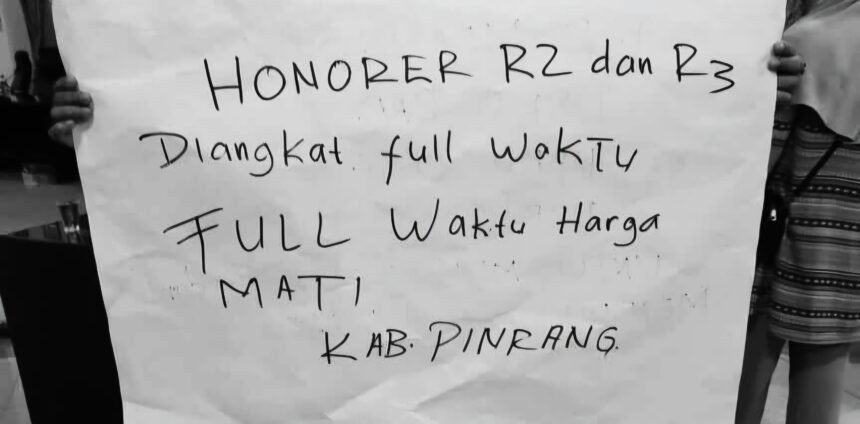 HONORER R2 dan R3
Diangkat full WaKTu
FULL Waktu Harga
MATI
KAB. PINRANG.